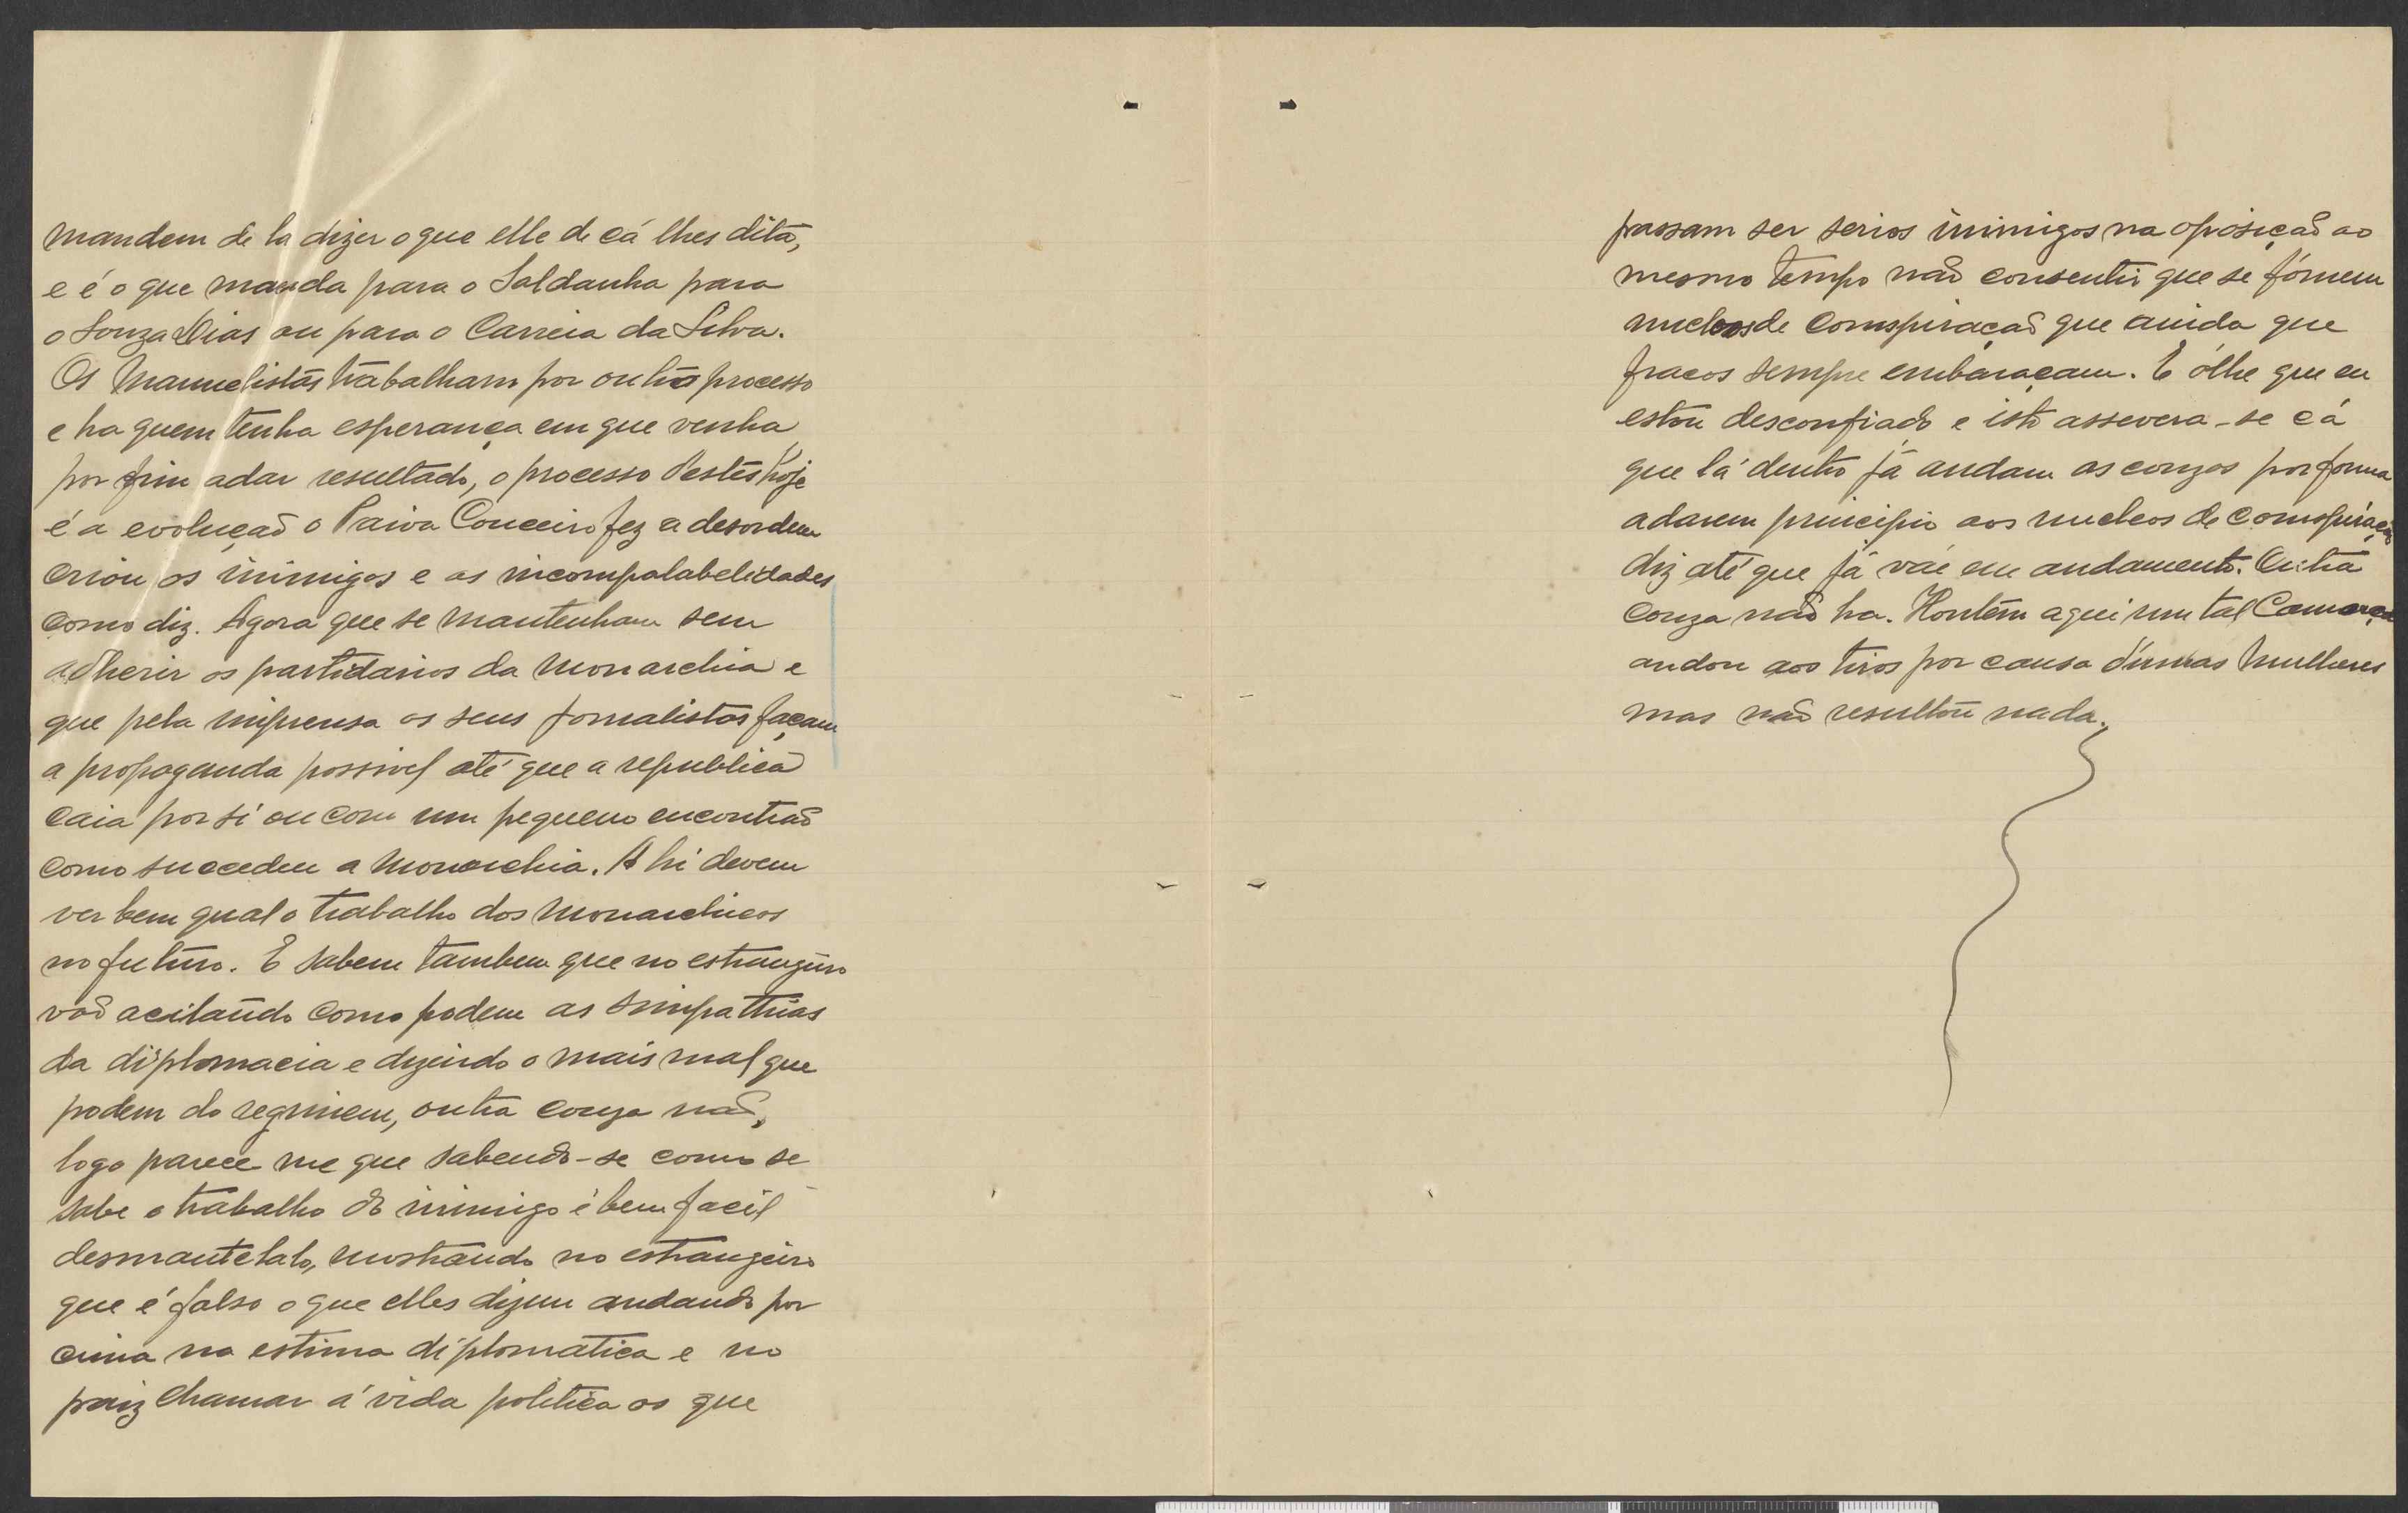 mandem de la dizer o que elle de cá lhes dita,
e é o que manda para o Saldanha para
o Souza Dias ou para o Carreia da Silva.
Os Manuelistas trabalham por outro processo
e ha quem tenha esperança em que venha
por fim a dar resultado, o processo destes hoje
é a evolução o Paiva Couceiro fez a desordem
criou os inimigos e as incompalabelidades
como diz. Agora que se mantenham sem
adherir os partidarios da Monarchia e
que pela imprensa os seus jornalistas façam
a propaganda possivel até que a republica
caia por si ou com um pequeno encontrão
como succedeu a Monarchia. Ahi devem
ver bem qual o trabalho dos Monarchicos
no futuro. E sabem tambem que no estrangeiro
vão acitando como podem as simpathias
da diplomacia e dizendo o mais mal que
podem do regimem, outra couza não,
logo parece me que sabendo-se como se
sabe o trabalho do inimigo é bem facil
desmantelalo, mostrando no estrangeiro
que é falso o que elles dizem andando por
cima na estima diplomatica e no
paiz chamar á vida politica os que
possam ser serios inimigos na oposição ao
mesmo tempo não consentir que se fórmem
nucleos de Comspiração que ainda que
fracos sempre embaraçam. E ólhe que eu
estou desconfiado e isto assevera-se cá
que lá dentro já andam as couzas por forma
a darem principio aos nucleos de comspiração
diz até que já vae em andamento. Outra
couza não ha. Hontem aqui um tal
andou aos tiros por causa d'umas Mulheres
mas não resultou nada.